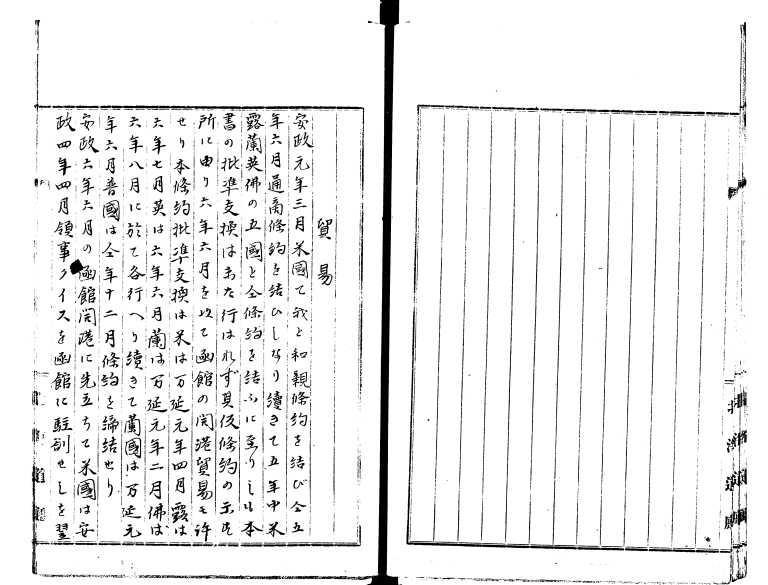 貿易
安政元年三月米國て我と和親條約を結び仝五
年六月通商條約を結ひしなり續きて五年中米
露蘭英佛の五國と仝條約を結ふに至りしも本
書の批準支換は未た行はれず其後條約の示す
所に由り六年六月を以て函館の開港貿易を許
せり本條約批準支換は米は万延元年四月露は
六年七月英は六年六月蘭は万延元年二月佛は
六年八月に於て各行へり續きて蘭國は万延元
年六月普國は仝年十二月條約を締結せり
安政六年六月の函館開港に先立ちて米國は安
政四年四月領事ライスを函館に駐剳せしを翌
北海道廳